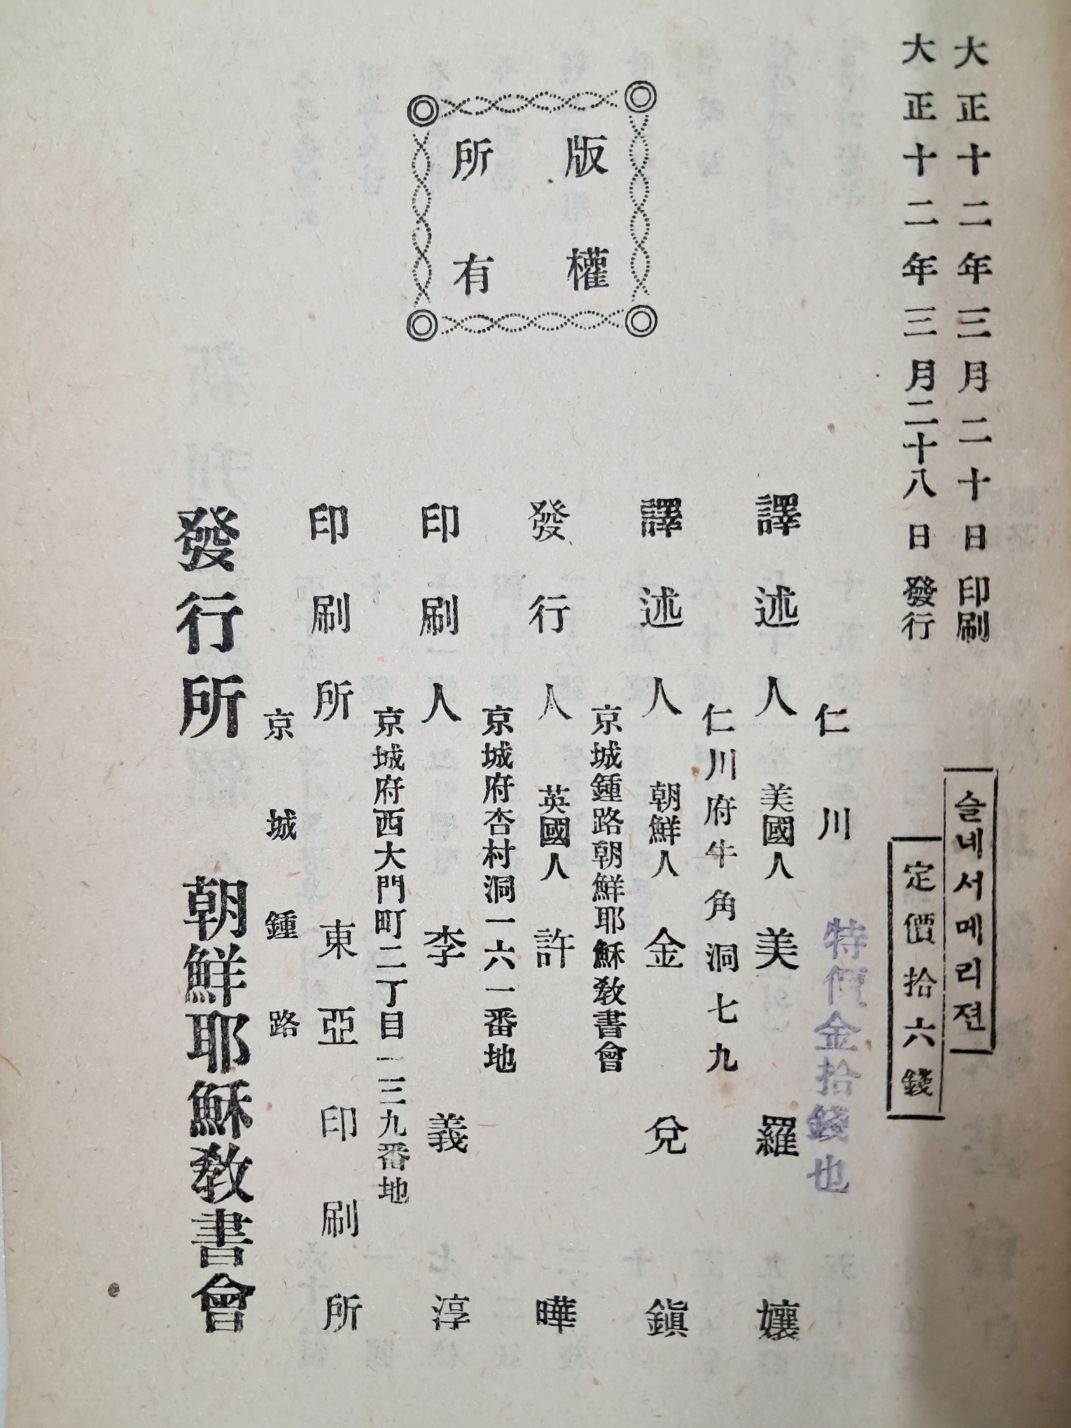 大正十二年三月二十日印刷
大正十二年三月二十八日發行
슬네서메리젼
定價拾六錢
版權
所有
特價金拾錢也
仁川
譯述人 美國人 美羅孃
仁川府牛角洞七九
譯述人 朝鮮人 金兌鎭
京城鍾路朝鮮耶穌敎書會
發行人 英國人 許曄
京城府杏村洞一六一番地
印刷人 李義淳
京城府西大門町二丁目一三九番地
印刷所 東亞印刷所
京城鍾路
發行所 朝鮮耶穌敎書會